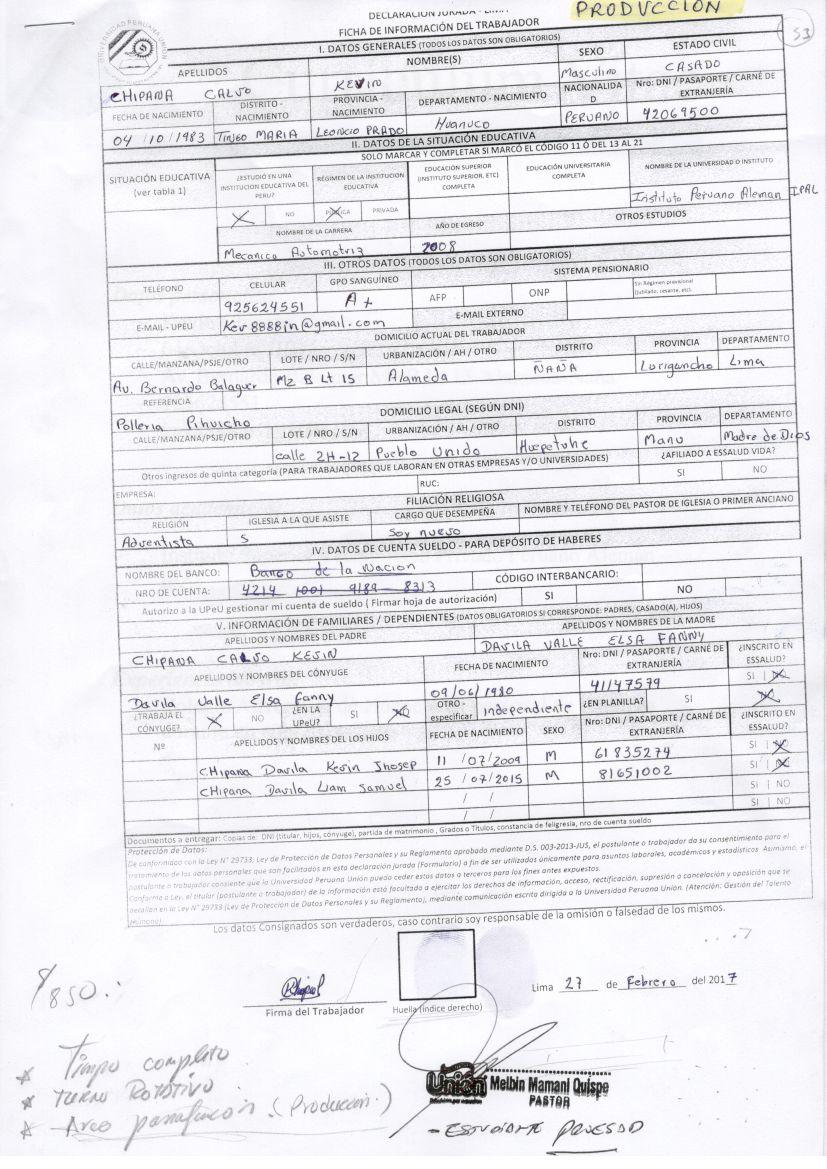 DECLARACIÓN JURADA - LIMA
PRODUCCIÓN
FICHA DE INFORMACIÓN DEL TRABAJADOR
53
UNIVERSIDAD PERUANA UNION
I. DATOS GENERALES (TODOS LOS DATOS SON OBLIGATORIOS)
APELLIDOS NOMBRE(S) SEXO ESTADO CIVIL
CHIPANA CALVO KEVIN Masculino CASADO
FECHA DE NACIMIENTO DISTRITO - NACIMIENTO PROVINCIA - NACIMIENTO DEPARTAMENTO - NACIMIENTO NACIONALIDAD Nro: DNI / PASAPORTE / CARNÉ DE EXTRANJERÍA
04 / 10 / 1983 TINGO MARIA LEONCIO PRADO Huanuco PERUANO 42069500
II. DATOS DE LA SITUACIÓN EDUCATIVA
SOLO MARCAR Y COMPLETAR SI MARCÓ EL CÓDIGO 11 Ó DEL 13 AL 21
SITUACIÓN EDUCATIVA (ver tabla 1) ¿ESTUDIÓ EN UNA INSTITUCION EDUCATIVA DEL PERU? RÉGIMEN DE LA INSTITUCION EDUCATIVA EDUCACIÓN SUPERIOR (INSTITUTO SUPERIOR, ETC) COMPLETA EDUCACIÓN UNIVERSITARIA COMPLETA NOMBRE DE LA UNIVERSIDAD O INSTITUTO
Instituto Peruano Aleman IPAL
X NO PÚBLICA PRIVADA
NOMBRE DE LA CARRERA AÑO DE EGRESO OTROS ESTUDIOS
Mecanica Automotriz 2008
III. OTROS DATOS (TODOS LOS DATOS SON OBLIGATORIOS)
TELÉFONO CELULAR GPO SANGUÍNEO SISTEMA PENSIONARIO
925624551 A+ AFP ONP Sin Régimen previsional (Jubilado, cesante, etc).
E-MAIL - UPEU Kev8888in@gmail.com E-MAIL EXTERNO
DOMICILIO ACTUAL DEL TRABAJADOR
CALLE/MANZANA/PSJE/OTRO LOTE / NRO / S/N URBANIZACIÓN / AH / OTRO DISTRITO PROVINCIA DEPARTAMENTO
Av. Bernardo Balaguer Mz B Lt 15 Alameda ÑAÑA Lurigancho Lima
REFERENCIA
Polleria Pihuicho
DOMICILIO LEGAL (SEGÚN DNI)
CALLE/MANZANA/PSJE/OTRO LOTE / NRO / S/N URBANIZACIÓN / AH / OTRO DISTRITO PROVINCIA DEPARTAMENTO
calle 2H-12 Pueblo Unido Huepetuhe Manu Madre de Dios
Otros ingresos de quinta categoría (PARA TRABAJADORES QUE LABORAN EN OTRAS EMPRESAS Y/O UNIVERSIDADES) ¿AFILIADO A ESSALUD VIDA?
EMPRESA: RUC: SI NO
FILIACIÓN RELIGIOSA
RELIGIÓN IGLESIA A LA QUE ASISTE CARGO QUE DESEMPEÑA NOMBRE Y TELÉFONO DEL PASTOR DE IGLESIA O PRIMER ANCIANO
Adventista S Soy nuevo
IV. DATOS DE CUENTA SUELDO - PARA DEPÓSITO DE HABERES
NOMBRE DEL BANCO: Banco de la Nacion CÓDIGO INTERBANCARIO:
NRO DE CUENTA: 4214 1001 9189 8313
Autorizo a la UPeU gestionar mi cuenta de sueldo ( Firmar hoja de autorización) SI NO
V. INFORMACIÓN DE FAMILIARES / DEPENDIENTES (DATOS OBLIGATORIOS SI CORRESPONDE: PADRES, CASADO(A), HIJOS)
APELLIDOS Y NOMBRES DEL PADRE APELLIDOS Y NOMBRES DE LA MADRE
CHIPANA CALVO KEVIN DAVILA VALLE ELSA FANNY
APELLIDOS Y NOMBRES DEL CÓNYUGE FECHA DE NACIMIENTO Nro: DNI / PASAPORTE / CARNÉ DE EXTRANJERÍA ¿INSCRITO EN ESSALUD?
Davila Valle Elsa Fanny 09/06/1980 41147579 SI NO
¿TRABAJA EL CÓNYUGE? X NO ¿EN LA UPeU? SI NO OTRO - especificar independiente ¿EN PLANILLA? SI NO
Nº APELLIDOS Y NOMBRES DEL LOS HIJOS FECHA DE NACIMIENTO SEXO Nro: DNI / PASAPORTE / CARNÉ DE EXTRANJERÍA ¿INSCRITO EN ESSALUD?
CHIPANA Davila Kevin Jhosep 11 / 07 / 2009 M 61835274 SI NO
CHIPANA Davila Liam Samuel 25 / 07 / 2015 M 81651002 SI NO
/ / SI NO
/ / SI NO
Documentos a entregar: Copias de: DNI (titular, hijos, cónyuge), partida de matrimonio , Grados o Títulos, constancia de feligresía, nro de cuenta sueldo
Protección de Datos:
De conformidad con la Ley N° 29733; Ley de Protección de Datos Personales y su Reglamento aprobado mediante D.S. 003-2013-JUS, el postulante o trabajador da su consentimiento para el
tratamiento de los datos personales que son facilitados en esta declaración jurada (Formulario) a fin de ser utilizados únicamente para asuntos laborales, académicos y estadísticos Asimismo, el
postulante o trabajador consiente que la Universidad Peruana Unión pueda ceder estos datos a terceros para los fines antes expuestos.
Conforme a Ley, el titular (postulante o trabajador) de la información está facultado a ejercitar los derechos de información, acceso, rectificación, supresión o cancelación y oposición que se
detallan en la Ley N° 29733 (Ley de Protección de Datos Personales y su Reglamento), mediante comunicación escrita dirigida a la Universidad Peruana Union. (Atención: Gestión del Talento
Humano).
Los datos Consignados son verdaderos, caso contrario soy responsable de la omisión o falsedad de los mismos.
Lima 27 de Febrero del 2017
Firma del Trabajador Huella (índice derecho)
850.-
* Tiempo completo
* TURNO ROTATIVO
Unión Melbin Mamani Quispe
PASTOR
- ESTUDIANTE PROESAD